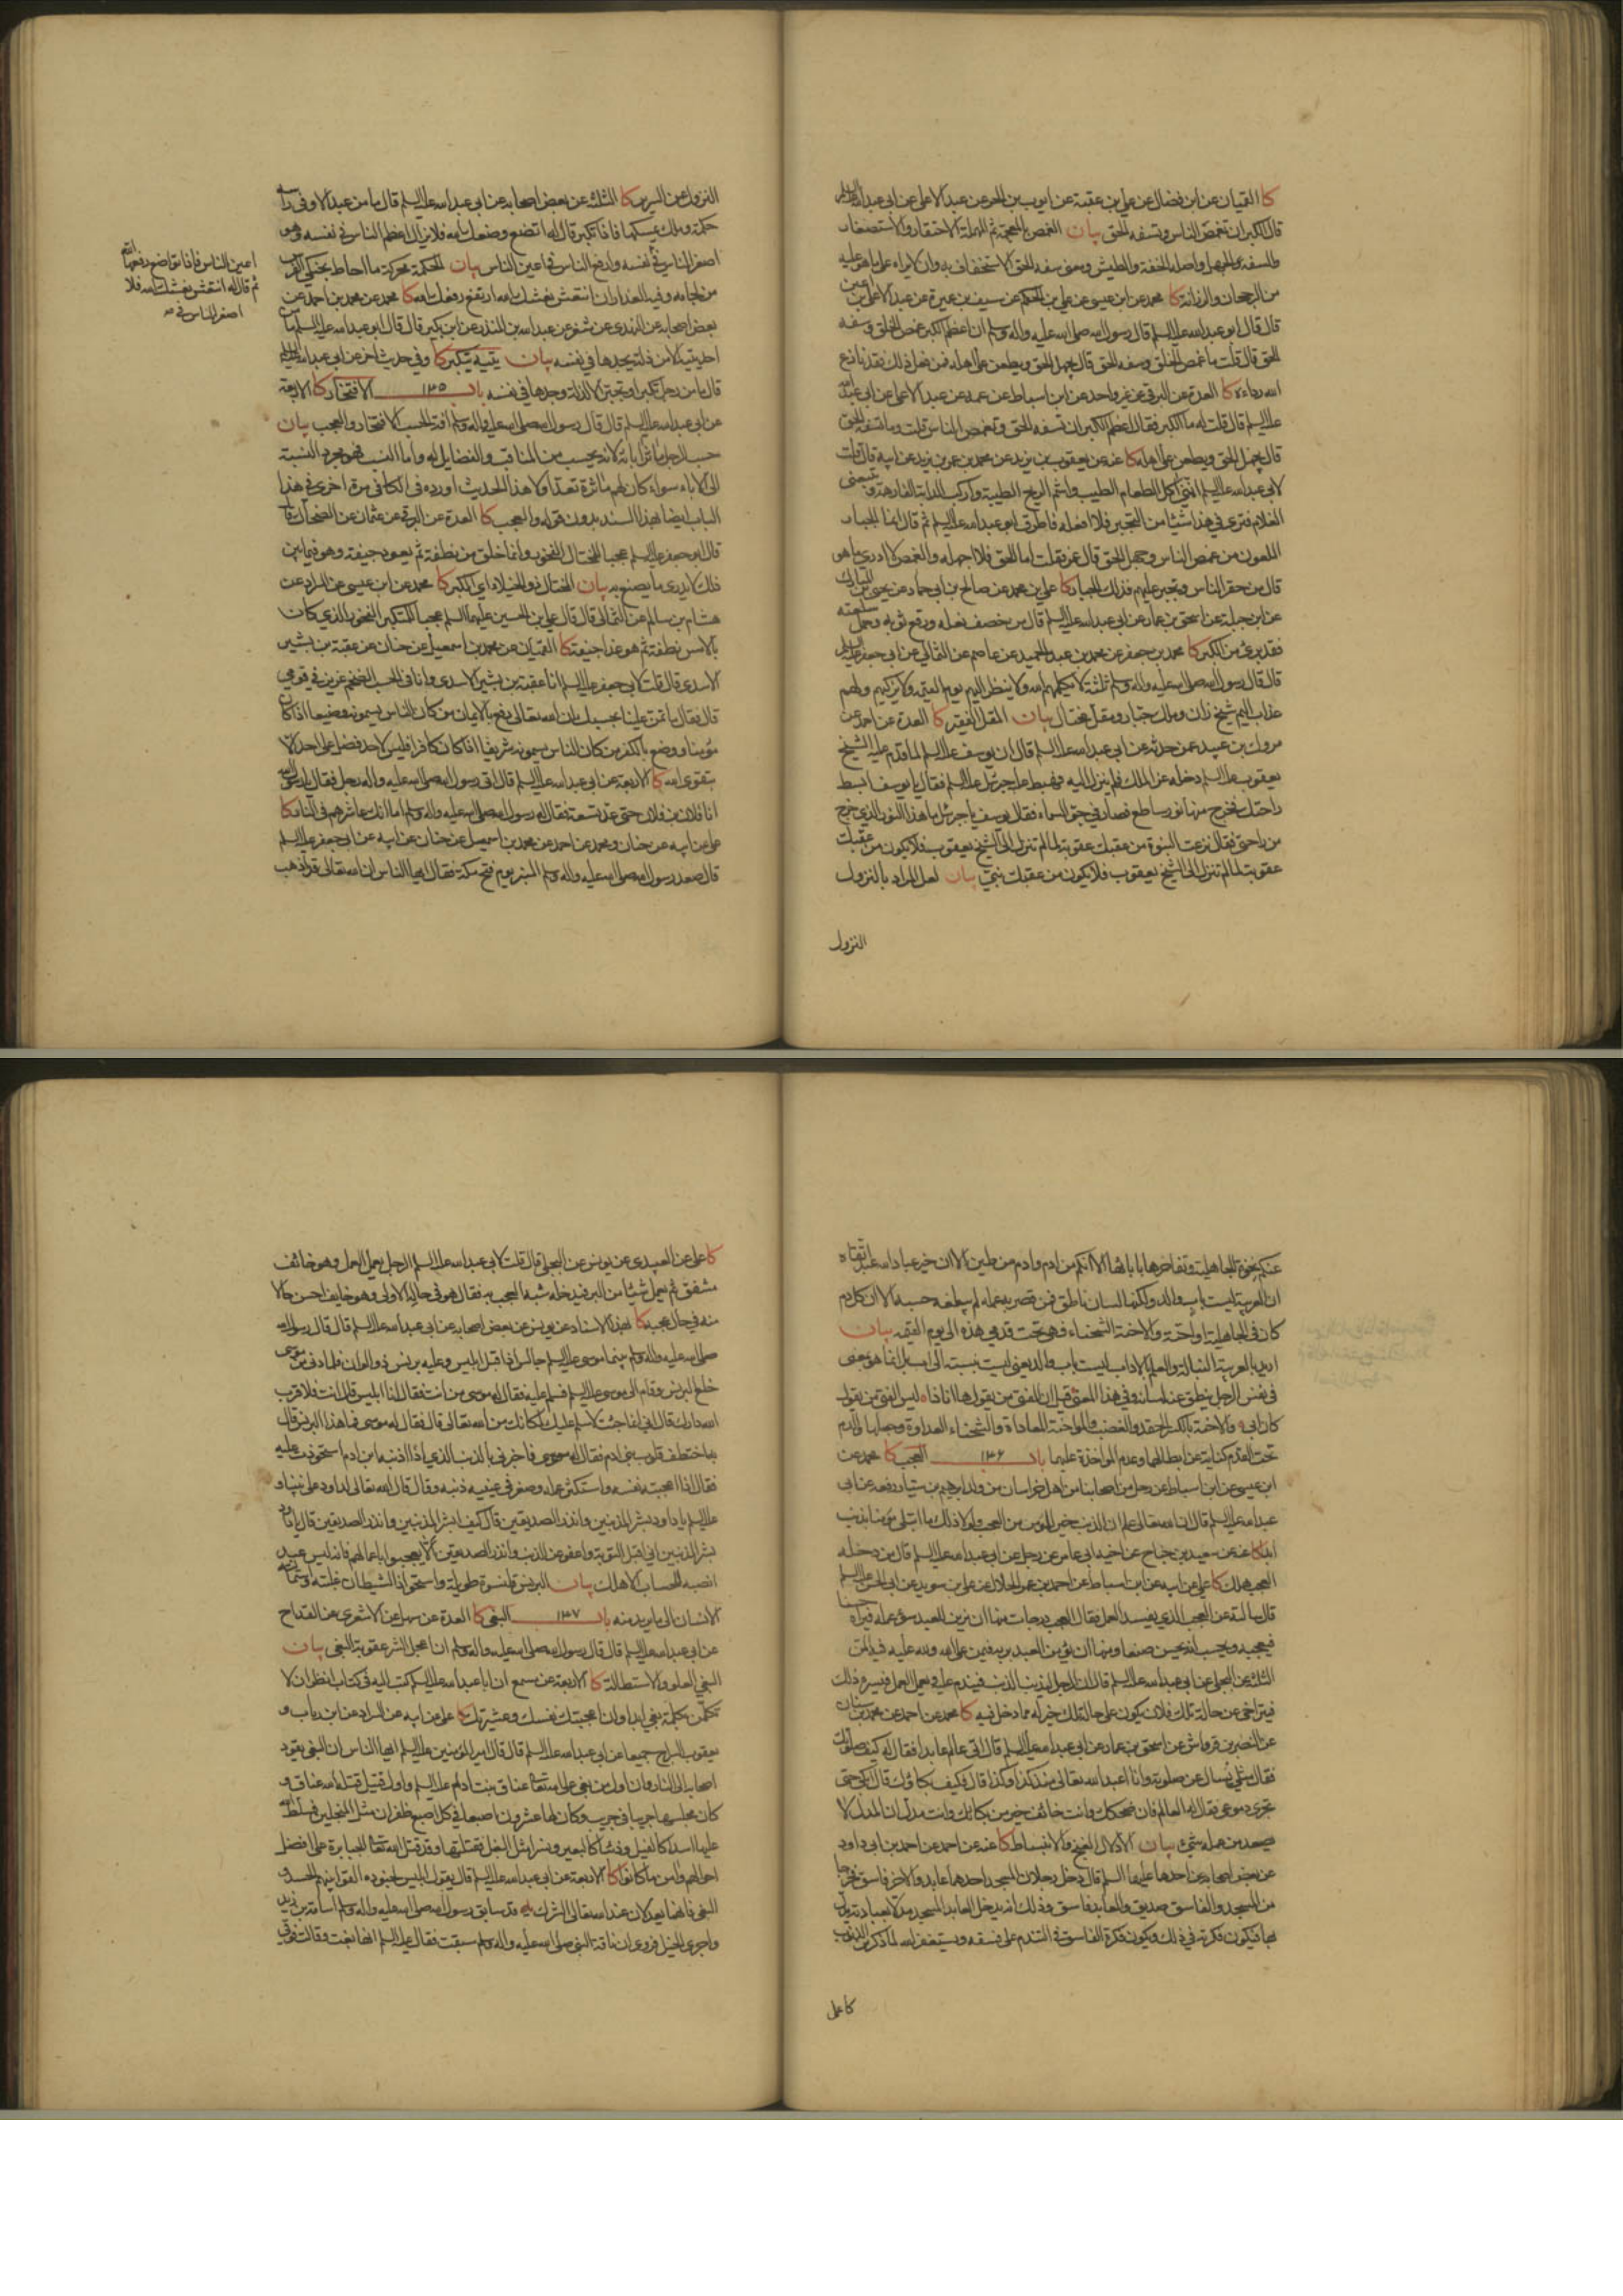 كا القميان عن ابن فضال عن علي بن عقبة عن ايوب بن الحر عن عبد الاعلى عن ابي عبدالله عليه السلم
قال الكبر ان تغمص الناس وتسفه الحق بيان الغمص بالمعجمة ثم المهملة الاحتقار والاستصغار
والسفه الجهل واصله الخفة والطيش ومعنى سفه الحق الاستخفاف به وان لا يراه على ما هو عليه
من الرجحان والرزانة كا محمد عن ابن عيسى عن علي بن الحكم عن سيف بن عميرة عن عبد الاعلى بن اعين
قال قال ابو عبدالله عليه السلم قال رسول الله صلى الله عليه واله وسلم ان اعظم الكبر غمص الخلق وسفه
الحق قال قلت ما غمص الخلق وسفه الحق قال يجهل الحق ويطعن على اهله فمن فعل ذلك فقد نازع
الله رداءه كا العدة عن البرقي عن غير واحد عن ابن اسباط عن عمه عن عبد الاعلى عن ابي عبدالله
عليه السلم قال قلت له ما الكبر فقال اعظم الكبر ان تسفه الحق وتغمص الناس قلت وما تسفه الحق
قال يجهل الحق ويطعن على اهله كا عنه عن يعقوب بن يزيد عن محمد بن عمر بن يزيد عن ابيه قال قلت
لابي عبدالله عليه السلم انني آكل الطعام الطيب واشم الريح الطيبة واركب الدابة الفارهة ويتبعني
الغلام فترى في هذا شيئا من التجبر فلا افعله فاطرق ابو عبدالله عليه السلم ثم قال انما الجبار
الملعون من غمص الناس وجهل الحق قال عمر فقلت اما الحق فلا اجهله والغمص لا ادري ما هو
قال من حقر الناس وتجبر عليهم فذلك الجبار كا علي بن محمد عن صالح بن ابي حماد عن يحيى بن المبارك
عن ابن جبلة عن اسحق بن عمار عن ابي عبدالله عليه السلم قال من خصف نعله ورقع ثوبه وحمل سلعته
فقد برئ من الكبر كا محمد بن جعفر عن محمد بن عبد الحميد عن عاصم عن الثمالي عن ابي جعفر عليه السلم
قال قال رسول الله صلى الله عليه واله وسلم ثلثة لا يكلمهم الله ولا ينظر اليهم يوم القيمة ولا يزكيهم ولهم
عذاب اليم شيخ زان وملك جبار ومقل مختال بيان المقل الفقير كا العدة عن احمد عن
مروك بن عبيد عمن حدثه عن ابي عبدالله عليه السلم قال ان يوسف عليه السلم لما قدم عليه الشيخ
يعقوب عليه السلم دخله عز الملك فلم ينزل اليه فهبط عليه جبرئيل عليه السلم فقال يا يوسف ابسط
راحتك فخرج منها نور ساطع فصار في جو السماء فقال يوسف يا جبرئيل ما هذا النور الذي خرج
من راحتي فقال نزعت النبوة من عقبك عقوبة لما لم تنزل الى الشيخ يعقوب فلا يكون من عقبك
عقوبة لما لم تنزل الى الشيخ يعقوب فلا يكون من عقبك نبي بيان لعل المراد بالنزول
النزول
النزول عن السرير كا الثلثة عن بعض اصحابه عن ابي عبدالله عليه السلم قال ما من عبد الا وفي راسه
حكمة وملك يمسكها فاذا تكبر قال له اتضع وضعك الله فلا يزال اعظم الناس في نفسه وهو
اصغر الناس في نفسه وارفع الناس في اعين الناس بيان الحكمة محركة ما احاط بحنكي الفرس
من لجامه وفيه العذاران انتعش نعشك الله ارتفع رفعك الله كا محمد عن محمد بن احمد عن
بعض اصحابه عن النهدي عن شعر عن عبدالله بن المنذر عن ابن بكير قال قال ابو عبدالله عليه السلم ما من
احد يتيه الا من ذلة يجدها في نفسه بيان يتيه يتكبر كا وفي حديث اخر عن ابي عبدالله عليه السلم
قال ما من رجل تكبر او تجبر الا لذلة وجدها في نفسه باب ١٣٥ الافتخار كا الاربعة
عن ابي عبدالله عليه السلم قال قال رسول الله صلى الله عليه واله وسلم آفة الحسب الافتخار والعجب بيان
حسب الرجل مآثر آبائه لانه يحسب من المناقب والفضايل له واما النسب فهو مجرد النسبة
الى الاباء سواء كان لهم ماثرة تعد ام لا هذا الحديث اورده في الكافي مرة اخرى في هذا
الباب ايضا بهذا السند بدون قوله والعجب كا العدة عن البرقي عن عثمان عن الضحاك قال
قال ابو جعفر عليه السلم عجبا للمختال الفخور وانما خلق من نطفة ثم يعود جيفة وهو فيما بين
ذلك لا يدري ما يصنع به بيان المختال ذو الخيلاء اي الكبر كا محمد عن ابن عيسى عن السراد عن
هشام بن سالم عن الثمالي قال قال علي بن الحسين عليهما السلم عجبا للمتكبر الفخور الذي كان
بالامس نطفة ثم هو غدا جيفة كا القميان عن محمد بن اسمعيل عن حنان عن عقبة بن بشير
الاسدي قال قلت لابي جعفر عليه السلم انا عقبة بن بشير الاسدي وانا في الحسب الضخم عزيز في قومي
قال فقال ما تمن علينا بحسبك ان الله تعالى رفع بالايمان من كان الناس يسمونه وضيعا اذا كان
مؤمنا ووضع بالكفر من كان الناس يسمونه شريفا اذا كان كافرا فليس لاحد فضل على احد الا
بتقوى الله كا الاربعة عن ابي عبدالله عليه السلم قال اتى رسول الله صلى الله عليه واله رجل فقال يا رسول الله
انا فلان بن فلان حتى عد تسعة فقال له رسول الله صلى الله عليه واله وسلم اما انك عاشرهم في النار كا
علي عن ابيه عن حنان ومحمد عن احمد عن محمد بن اسمعيل عن حنان عن ابيه عن ابي جعفر عليه السلم
قال صعد رسول الله صلى الله عليه واله وسلم المنبر يوم فتح مكة فقال ايها الناس ان الله تعالى قد اذهب
اعين الناس فاذا تواضع رفعها الله
ثم قال له انتعش نعشك الله فلا
اصغر الناس في
عنكم نخوة الجاهلية وتفاخرها بابائها الا انكم من ادم وادم من طين الا ان خير عباد الله عبد اتقاه
ان العربية ليست باب والد ولكنها لسان ناطق فمن قصر به عمله لم يبلغه حسبه الا ان كل دم
كان في الجاهلية او احنة والاحنة الشحناء فهي تحت قدمي هذه الى يوم القيمة بيان
اريد بالعربية النبالة والعلم الاداب ليست باب والد يعني ليست نسبته الى اب بل انما هو معنى
في نفس الرجل ينطق عنه لسانه وفي هذا المعنى قيل ان الفتى من يقول ها انا ذا ليس الفتى من يقول
كان ابي والاحنة بالكسر الحقد والغضب والمواحنة المعاداة والشحناء العداوة وجعلها والدم
تحت القدم كناية عن ابطالها وعدم المؤاخذة عليها باب ١٣۶ العجب كا محمد عن
ابن عيسى عن ابن اسباط عن رجل من اصحابنا من اهل خراسان من ولد ابرهيم بن سيار رفعه عن ابي
عبدالله عليه السلم قال ان الله تعالى علم ان الذنب خير للمؤمن من العجب ولولا ذلك ما ابتلي مؤمنا بذنب
ابدا كا عنه عن سعيد بن جناح عن اخيه ابي عامر عن رجل عن ابي عبدالله عليه السلم قال من دخله
العجب هلك كا علي عن ابيه عن ابن اسباط عن احمد بن عمر الحلال عن علي بن سويد عن ابي الحسن عليه السلم
قال سالته عن العجب الذي يفسد العمل فقال العجب درجات منها ان يزين للعبد سوء عمله فيراه حسنا
فيعجبه ويحسب انه يحسن صنعا ومنها ان يؤمن العبد بربه فيمن على الله ولله عليه فيه المن
الثلثة عن البجلي عن ابي عبدالله عليه السلم قال ان الرجل ليذنب الذنب فيندم عليه ويعمل العمل فيسره ذلك
فيتراخى عن حاله تلك فلان يكون على حاله تلك خير له مما دخل فيه كا محمد عن احمد عن محمد بن سنان
عن النضر بن قرواش عن اسحق بن عمار عن ابي عبدالله عليه السلم قال اتى عالم عابدا فقال له كيف صلوتك
فقال مثلي يسال عن صلوته وانا اعبد الله تعالى منذ كذا وكذا قال فكيف بكاؤك قال ابكي حتى
تجري دموعي فقال له العالم فان ضحكك وانت خائف خير من بكائك وانت مدل ان المدل لا
يصعد من عمله شيء بيان الادلال الغنج والانبساط كا عنه عن احمد عن احمد بن ابي داود
عن بعض اصحابه عن احدهما عليهما السلم قال دخل رجلان المسجد احدهما عابد والاخر فاسق فخرجا
من المسجد والفاسق صديق والعابد فاسق وذلك انه يدخل العابد المسجد مدلا بعبادته يدل
بها فيكون فكرته في ذلك ويكون فكرة الفاسق في التندم على فسقه ويستغفر الله لما ذكر من الذنوب
كا علي
كا علي عن العبيدي عن يونس عن البجلي قال قلت لابي عبدالله عليه السلم الرجل يعمل العمل وهو خائف
مشفق ثم يعمل شيئا من البر فيدخله شبه العجب به فقال هو في حاله الاولى وهو خايف احسن حالا
منه في حال عجبه كا بهذا الاسناد عن يونس عن بعض اصحابه عن ابي عبدالله عليه السلم قال قال رسول الله
صلى الله عليه واله وسلم بينما موسى عليه السلم جالس اذ اقبل ابليس وعليه برنس ذو الوان فلما دنى من موسى
خلع البرنس وقام الى موسى عليه السلم فسلم عليه فقال له موسى من انت فقال انا ابليس قال انت فلا قرب
الله دارك قال اني انما جئت لاسلم عليك لمكانك من الله تعالى قال فقال له موسى فما هذا البرنس قال
به اختطف قلوب بني ادم فقال له موسى فاخبرني بالذنب الذي اذا اذنبه ابن ادم استحوذت عليه
فقال اذا اعجبته نفسه واستكثر عمله وصغر في عينيه ذنبه وقال قال الله تعالى لداود على نبينا و
عليه السلم يا داود بشر المذنبين وانذر الصديقين قال كيف ابشر المذنبين وانذر الصديقين قال يا داود
بشر المذنبين اني اقبل التوبة واعفو عن الذنب وانذر الصديقين الا يعجبوا باعمالهم فانه ليس عبد
انصبه للحساب الا هلك بيان البرنس قلنسوة طويلة واستحواذ الشيطان غلبته واستمالته
الانسان الى ما يريد منه باب ١٣٧ البغي كا العدة عن سهل عن الاشعري عن القداح
عن ابي عبدالله عليه السلم قال قال رسول الله صلى الله عليه واله وسلم ان اعجل الشر عقوبة البغي بيان
البغي العلو والاستطالة كا الاربعة عن مسمع ان ابا عبدالله عليه السلم كتب اليه في كتاب انظر ان لا
تكلمن بكلمة بغي ابدا وان اعجبتك نفسك وعشيرتك كا علي عن ابيه عن السراد عن ابن رياب و
يعقوب السراج جميعا عن ابي عبدالله عليه السلم قال قال امير المؤمنين عليه السلم ايها الناس ان البغي يقود
اصحابه الى النار وان اول من بغى على الله تعالى عناق بنت ادم عليه السلم واول قتيل قتله الله عناق و
كان مجلسها جريبا في جريب وكان لها عشرون اصبعا في كل اصبع ظفران مثل المنجلين فسلط الله
عليها اسدا كالفيل وذئبا كالبعير ونسرا مثل البغل فقتلنها وقد قتل الله تعالى الجبابرة على افضل
احوالهم وامن ما كانوا كا الاربعة عن ابي عبدالله عليه السلم قال يقول ابليس لجنوده القوا بينهم الحسد و
البغي فانهما يعدلان عند الله تعالى الشرك يه قد سابق رسول الله صلى الله عليه واله وسلم اسامة بن زيد
واجرى الخيل فروي ان ناقة النبي صلى الله عليه واله وسلم سبقت فقال عليه السلم انها بغت وقالت فوقي